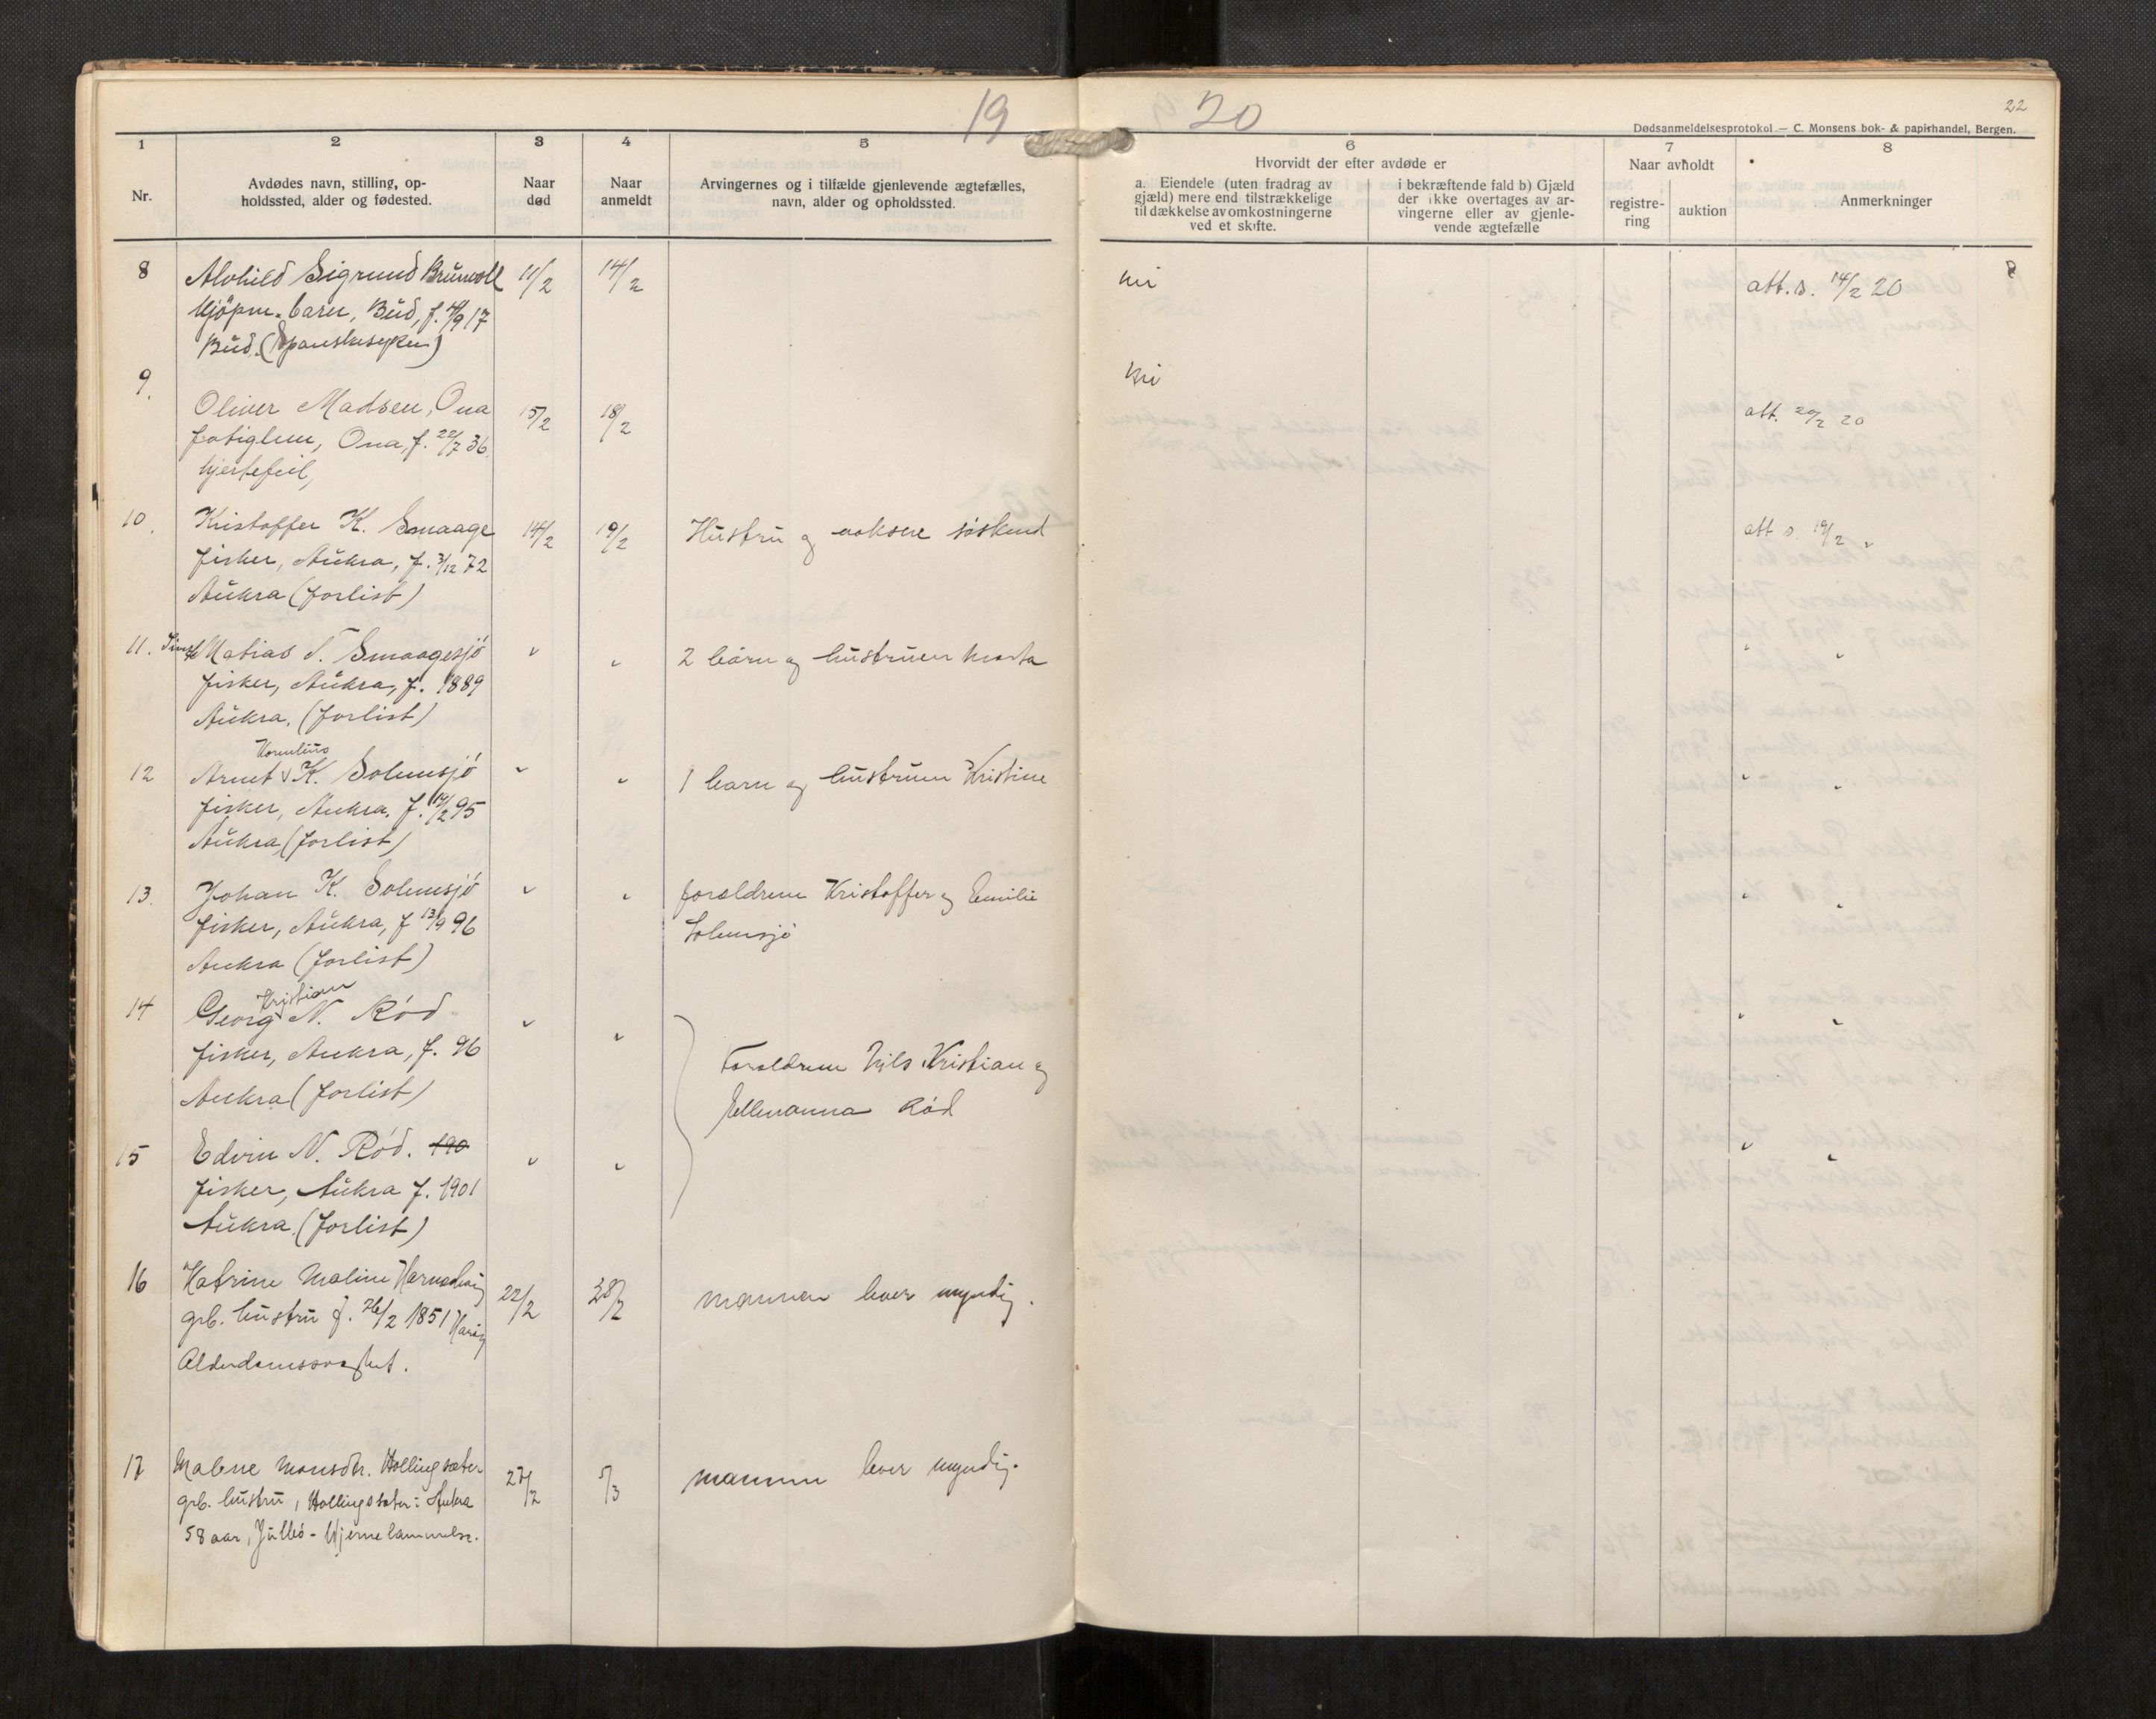 19
20
22
Dødsanmeldelsesprotokol — C. Monsens bok- & papirhandel, Bergen.
1 2 3 4 5 6 7 8
Nr.
Avdødes navn, stilling, op-
holdssted, alder og fødested.
Naar
død
Naar
anmeldt
Arvingernes og i tilfælde gjenlevende ægtefælles,
navn, alder og opholdssted.
Hvorvidt der efter avdøde er
a. Eiendele (uten fradrag av
gjæld) mere end tilstrækkelige
til dækkelse av omkostningerne
ved et skifte.
i bekræftende fald b) Gjæld
der ikke overtages av ar-
vingerne eller av gjenle-
vende ægtefælle
Naar avholdt
registre-
ring
auktion
Anmerkninger
8 Alvhild Sigrund Brunvoll 11/2 14/2 nei att. s. 14/2 20
kjöpm. barn, Bud, f. 17
Bud. (Spanskesyken)
9. nei
Oliver Madsen, Ona 15/2 18/2 att. 20/2 20
fatiglem, Ona, f. 22/7 36
hjertefeil,
10. Kristoffer K. Smaage 14/2 19/2 Hustru og voksne söskend att s 19/2 "
fisker, Aukra, f. 3/12 72
Aukra (forlist)
11. Matias T. Smaagesjö " " 2 börn og hustruen Marta " "
fisker, Aukra, f. 1889
Aukra. (forlist)
Kornelius
12 Arnt K. Solemsjö " " 1 barn og hustruen Kristine " "
fisker, Aukra. f. 14/2 95
Aukra (forlist)
13. Johan K. Solemsjö " " foreldrene Kristoffer og Emilie " "
fisker, Aukra, f 13/9 96 Solemsjö
Aukra (forlist)
Kristian
14 Georg N. Röd " " " "
fisker, Aukra, f. 96 Foreldrene Nils Kristian og
Aukra (forlist) Ellenanna Röd
15 Edvin N. Röd. 190 " " " "
fisker, Aukra f. 1901
Aukra. (forlist)
16 Katrine Maline 22/2 28/2 mannen lever myndig.
grb. hustru f. 26/2 1851 Harøy
Alderdomssvakhet.
17 Malene Monsdtr. Hollingsæter 27/2 5/3 mannen lever myndig.
grb. hustru, Hollingsæter i Aukra
58 aar, Julbö - Hjernelammelse.